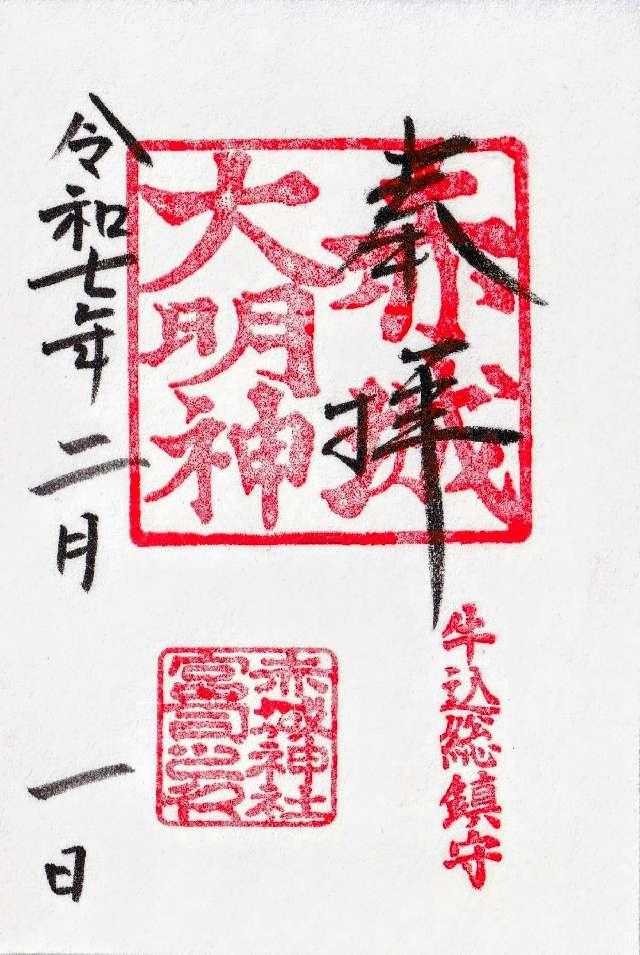 奉拝
赤城
大明神
牛込総鎮守
赤城神社
宮司之印
令和七年二月一日